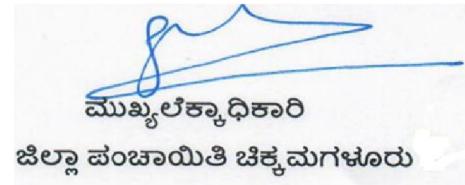 ಮುಖ್ಯಲೆಕ್ಕಾಧಿಕಾರಿ
ಜಿಲ್ಲಾ ಪಂಚಾಯಿತಿ ಚಿಕ್ಕಮಗಳೂರು